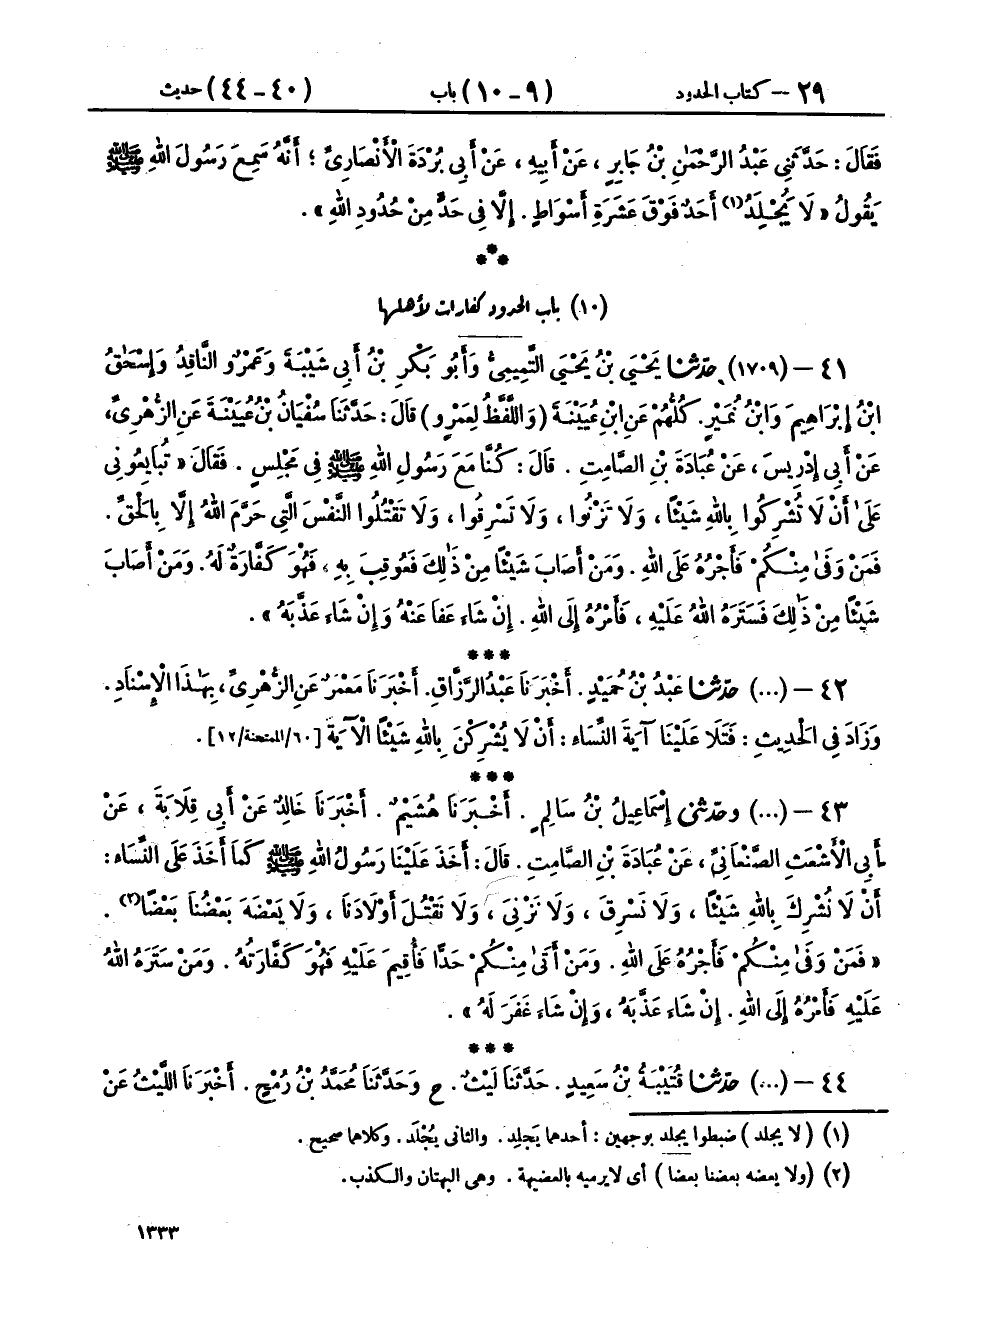 ٢٩ – كتاب الحدود (٩ – ١٠) باب (٤٠ – ٤٤) حديث
فَقَالَ : حَدَّثَنِي عَبْدُ الرَّحْمَٰنِ بْنُ جَابِرٍ ، عَنْ أَبِيهِ ، عَنْ أَبِي بُرْدَةَ الْأَنْصَارِيِّ ؛ أَنَّهُ سَمِعَ رَسُولَ اللهِ ﷺ
يَقُولُ « لَا يُجْلَدُ(١) أَحَدٌ فَوْقَ عَشَرَةِ أَسْوَاطٍ . إِلَّا فِي حَدٍّ مِنْ حُدُودِ اللهِ » .
***
(١٠) باب الحدود كفارات لأهلها
٤١ – (١٧٠٩) حدّثنا يَحْيَى بْنُ يَحْيَى التَّمِيمِيُّ وَأَبُو بَكْرِ بْنُ أَبِي شَيْبَةَ وَعَمْرٌو النَّاقِدُ وَإِسْحَٰقُ
ابْنُ إِبْرَاهِيمَ وَابْنُ نُمَيْرٍ . كُلُّهُمْ عَنِ ابْنِ عُيَيْنَةَ (وَاللَّفْظُ لِعَمْرٍو) قَالَ : حَدَّثَنَا سُفْيَانُ بْنُ عُيَيْنَةَ عَنِ الزُّهْرِيِّ،
عَنْ أَبِي إِدْرِيسَ ، عَنْ عُبَادَةَ بْنِ الصَّامِتِ . قَالَ : كُنَّا مَعَ رَسُولِ اللهِ ﷺ فِي مَجْلِسٍ . فَقَالَ « تُبَايِعُونِي
عَلَىٰ أَنْ لَا تُشْرِكُوا بِاللهِ شَيْئًا ، وَلَا تَزْنُوا ، وَلَا تَسْرِقُوا ، وَلَا تَقْتُلُوا النَّفْسَ الَّتِي حَرَّمَ اللهُ إِلَّا بِالْحَقِّ .
فَمَنْ وَفَىٰ مِنْكُمْ فَأَجْرُهُ عَلَى اللهِ . وَمَنْ أَصَابَ شَيْئًا مِنْ ذَٰلِكَ فَعُوقِبَ بِهِ ، فَهُوَ كَفَّارَةٌ لَهُ . وَمَنْ أَصَابَ
شَيْئًا مِنْ ذَٰلِكَ فَسَتَرَهُ اللهُ عَلَيْهِ ، فَأَمْرُهُ إِلَى اللهِ . إِنْ شَاءَ عَفَا عَنْهُ وَإِنْ شَاءَ عَذَّبَهُ » .
***
٤٢ – (...) حدّثنا عَبْدُ بْنُ حُمَيْدٍ . أَخْبَرَنَا عَبْدُ الرَّزَّاقِ . أَخْبَرَنَا مَعْمَرٌ عَنِ الزُّهْرِيِّ ، بِهَٰذَا الْإِسْنَادِ .
وَزَادَ فِي الْحَدِيثِ : فَتَلَا عَلَيْنَا آيَةَ النِّسَاءِ : أَنْ لَا يُشْرِكْنَ بِاللهِ شَيْئًا الْآيَةَ [٦٠/الممتحنة/١٢] .
***
٤٣ – (...) وحدّثني إِسْمَاعِيلُ بْنُ سَالِمٍ . أَخْبَرَنَا هُشَيْمٌ . أَخْبَرَنَا خَالِدٌ عَنْ أَبِي قِلَابَةَ ، عَنْ
أَبِي الْأَشْعَثِ الصَّنْعَانِيِّ ، عَنْ عُبَادَةَ بْنِ الصَّامِتِ . قَالَ : أَخَذَ عَلَيْنَا رَسُولُ اللهِ ﷺ كَمَا أَخَذَ عَلَى النِّسَاءِ :
أَنْ لَا نُشْرِكَ بِاللهِ شَيْئًا ، وَلَا نَسْرِقَ ، وَلَا نَزْنِيَ ، وَلَا نَقْتُلَ أَوْلَادَنَا ، وَلَا يَعْضَهَ بَعْضُنَا بَعْضًا(٢) .
« فَمَنْ وَفَىٰ مِنْكُمْ فَأَجْرُهُ عَلَى اللهِ . وَمَنْ أَتَىٰ مِنْكُمْ حَدًّا فَأُقِيمَ عَلَيْهِ فَهُوَ كَفَّارَتُهُ . وَمَنْ سَتَرَهُ اللهُ
عَلَيْهِ فَأَمْرُهُ إِلَى اللهِ . إِنْ شَاءَ عَذَّبَهُ ، وَإِنْ شَاءَ غَفَرَ لَهُ » .
***
٤٤ – (...) حدّثنا قُتَيْبَةُ بْنُ سَعِيدٍ . حَدَّثَنَا لَيْثٌ . ح وَحَدَّثَنَا مُحَمَّدُ بْنُ رُمْحٍ . أَخْبَرَنَا اللَّيْثُ عَنْ
(١) (لا يجلد) ضبطوا يجلد بوجهين : أحدهما يَجلِد . والثانى يُجْلَد . وكلاهما صحيح .
(٢) (ولا يعضه بعضنا بعضا) أى لا يرميه بالعضيهة . وهى البهتان والكذب .
١٣٣٣